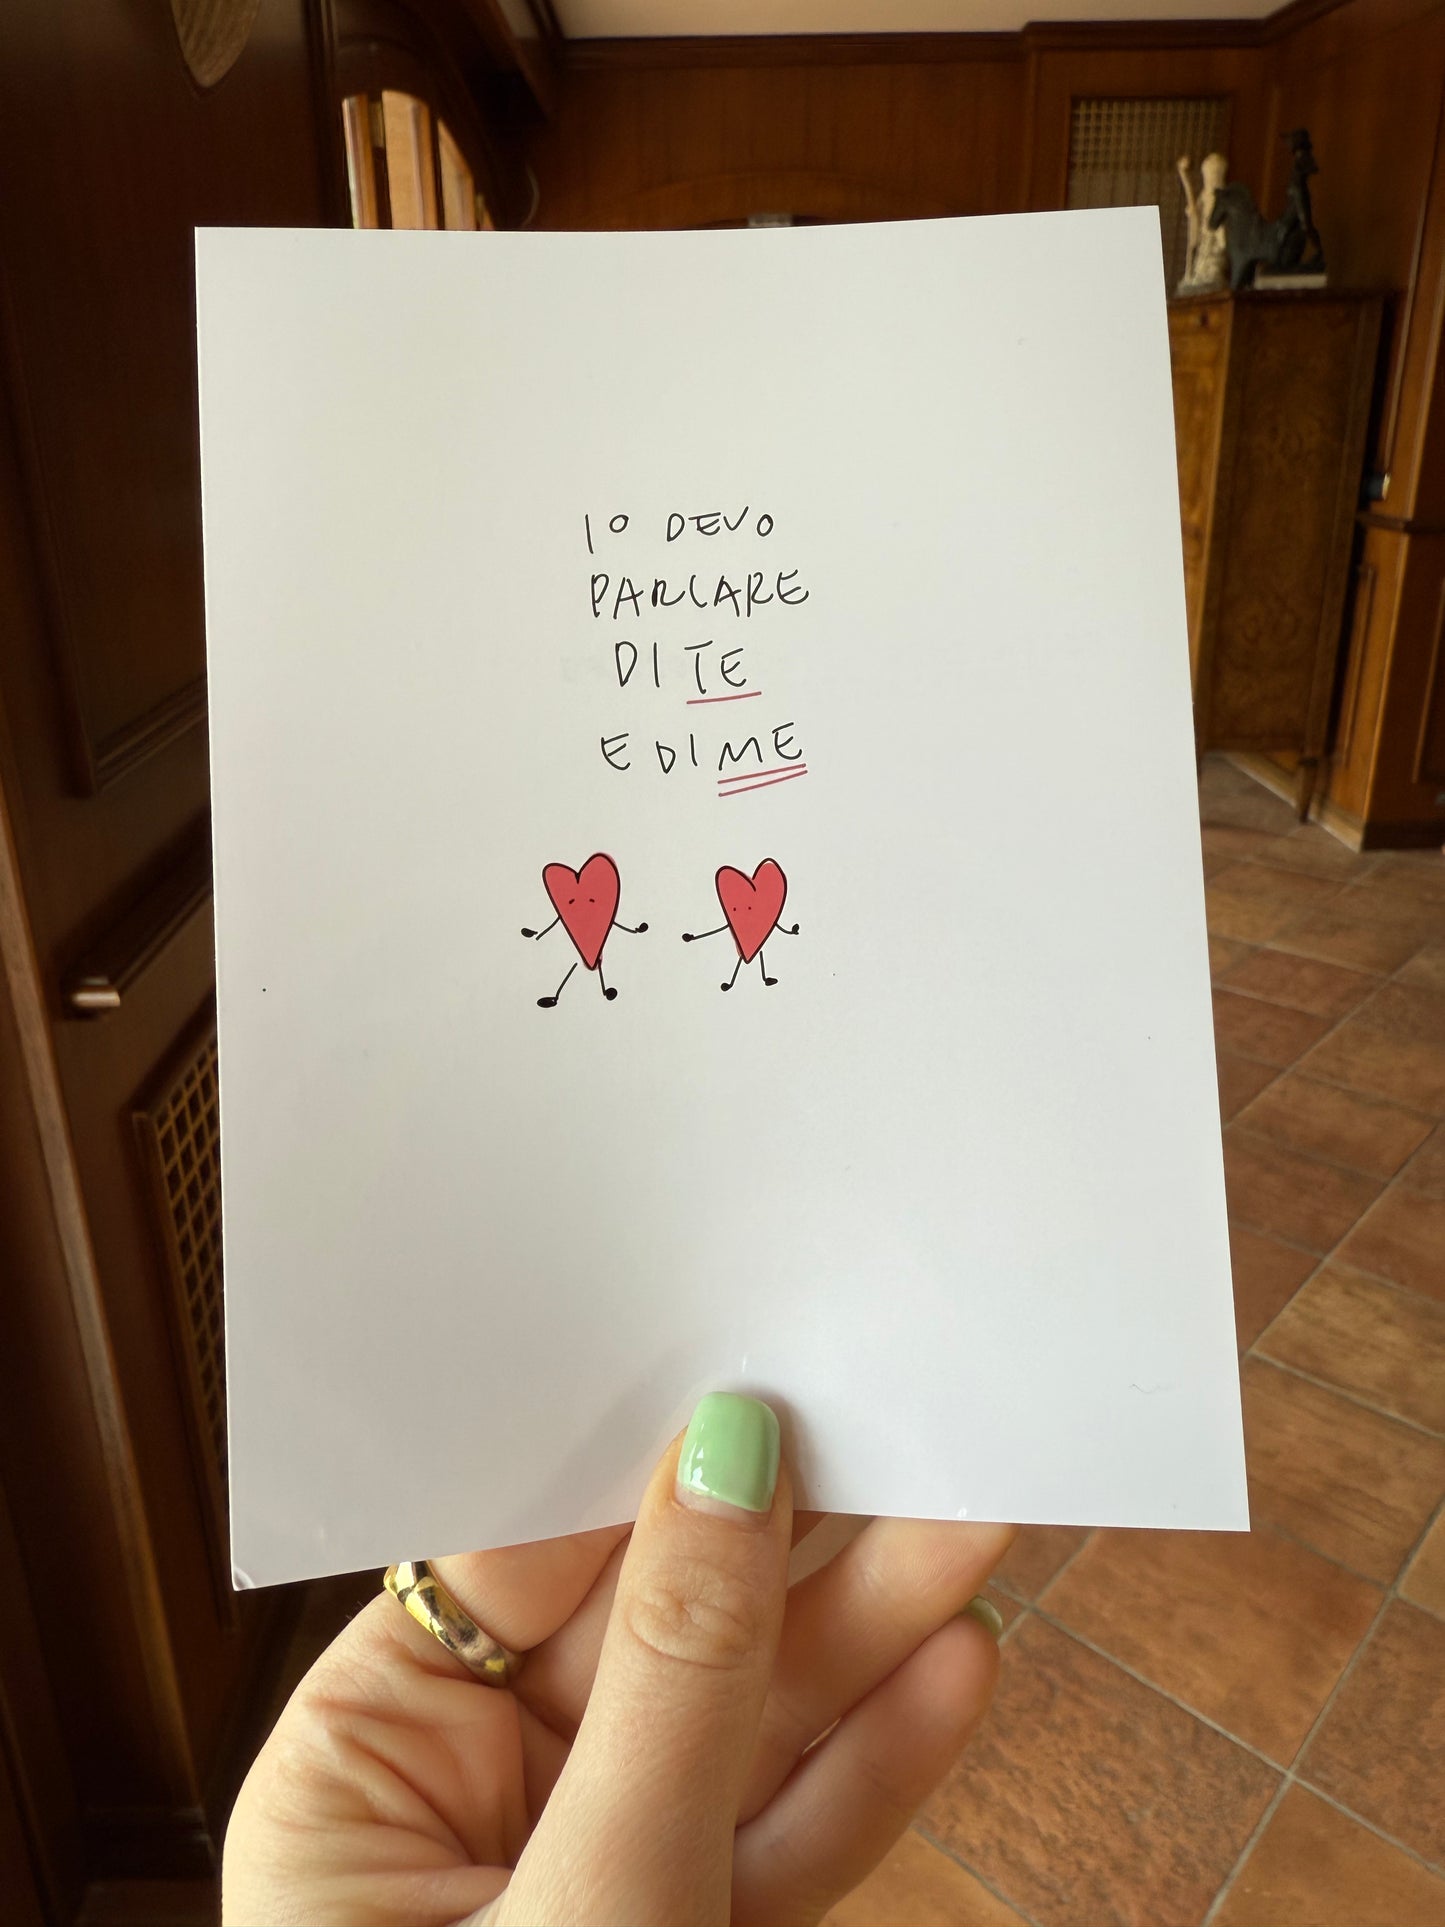 IO DEVO
PARLARE
DI TE
E DI ME